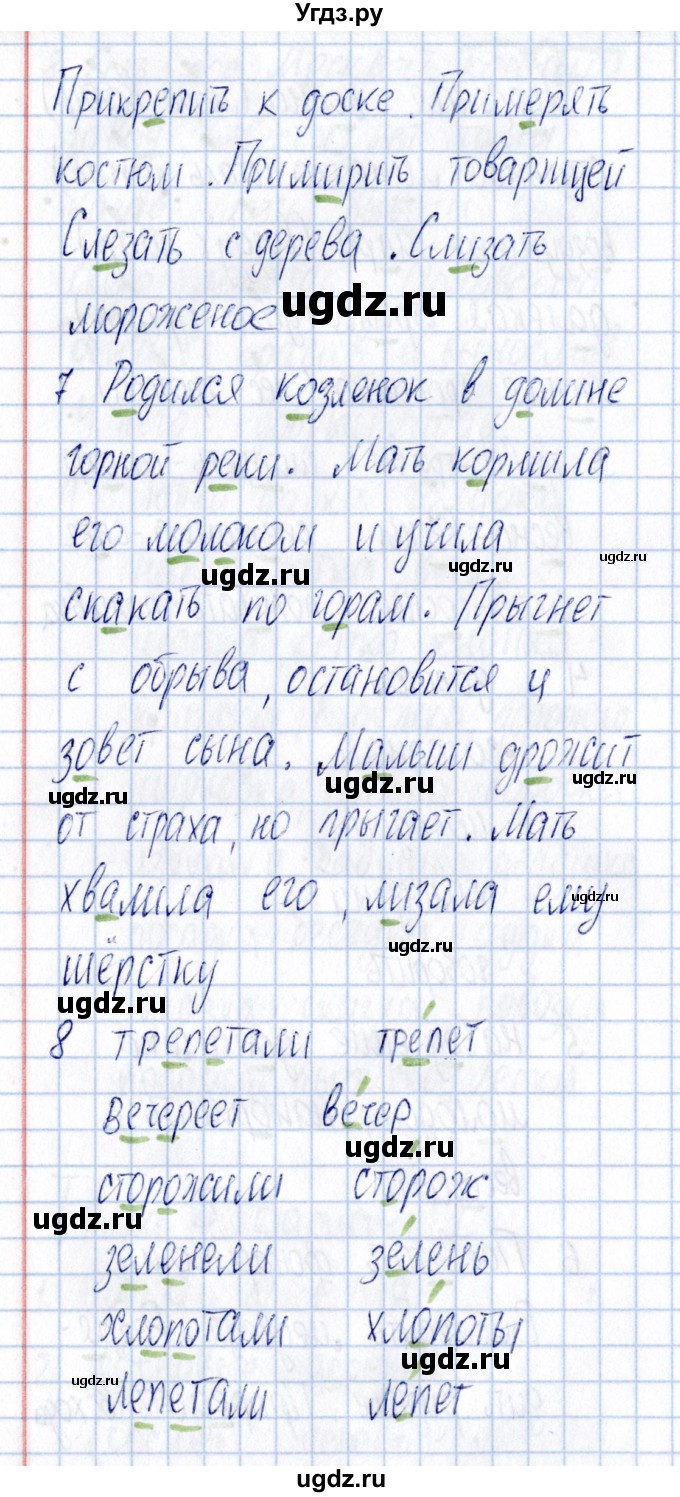 Угдз.ру
Прикрепить к доске. Примерять
костюм. Примирить товарищей
Слезать с дерева. Слизать
мороженое ugdz.ru
7 Родился козленок в долине
горной реки. Мать кормила
его молоком и учила
ugdz.ru ugdz.ru ugdz.ru
скакать по горам. Прыгнет
с обрыва, остановится и
зовет сына. Малыш дрожит
ugdz.ru ugdz.ru ugdz.ru
от страха, но прыгает. Мать
хвалила его, лизала ему
ugdz.ru
ugdz.ru
шёрстку
ugdz.ru
8 трепетали тре́пет
вечереет ве́чер
ugdz.ru
сторожили сторож
ugdz.ru
зеленели зе́лень
хлопотали хло́поты
ugdz.ru
ugdz.ru
лепетали ле́пет
ugdz.ru